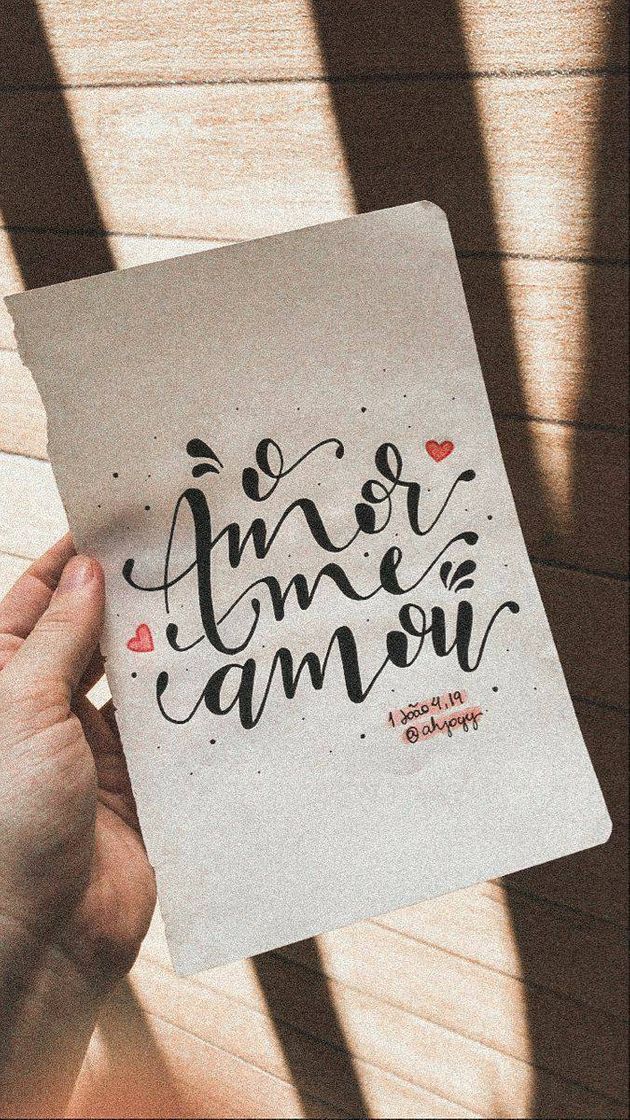 o
Amor
me
amou
1 João 4,19
@ahjoyy